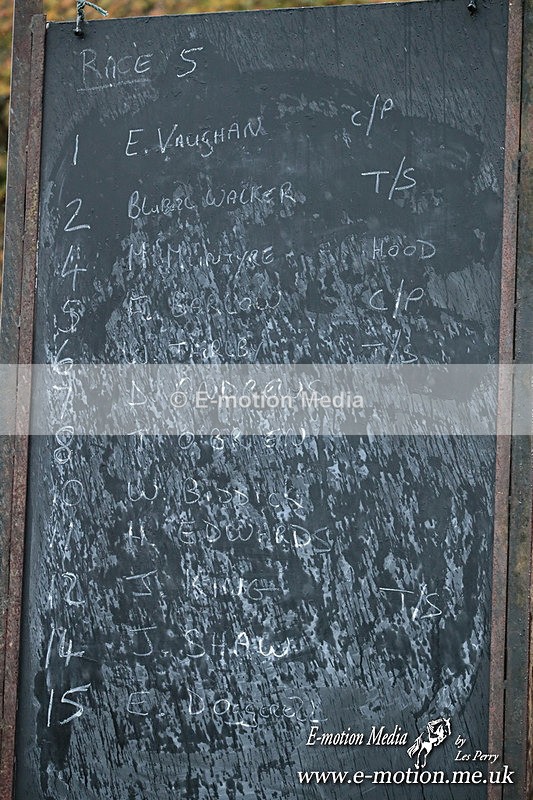 RACE 5
1 E. VAUGHAN C/P
2 WALKER T/S
4 M. MINTYRE HOOD
5 BARLOW C/P
6 W. T/S
7 D. ANDREWS
© E-motion Media
8 T O'BRIEN
10 W. BIDDICK
11 H. EDWARDS
12 J KING T/S
14 J. SHAW
15 E.
E-motion Media by Les Perry
www.e-motion.me.uk